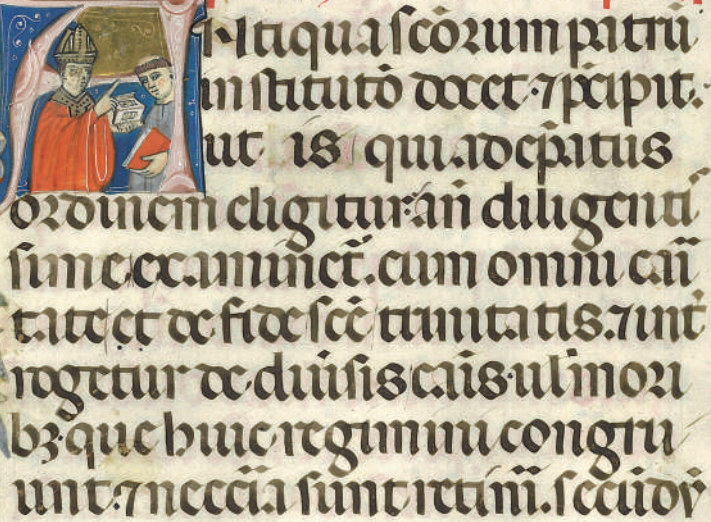 Antiqua scōrum patrū
institutō docet ⁊ p̄cipit.
ut is qui ad ep̄atus
ordinem eligitur: an̄ diligenti
sime examinet̄. cum omni cari
tate et de fide scē trinitatis. ⁊ int̄
rogetur de diūsis cāis. ul̄ mori
bꝫ. que huic regimini congru
unt. ⁊ neccīa sunt retinī. secūdū